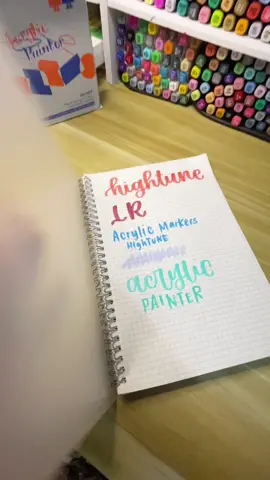 Acrylic
Painter
hightune
LR
Acrylic Markers
HIGHTUNE
acrylic
PAINTER